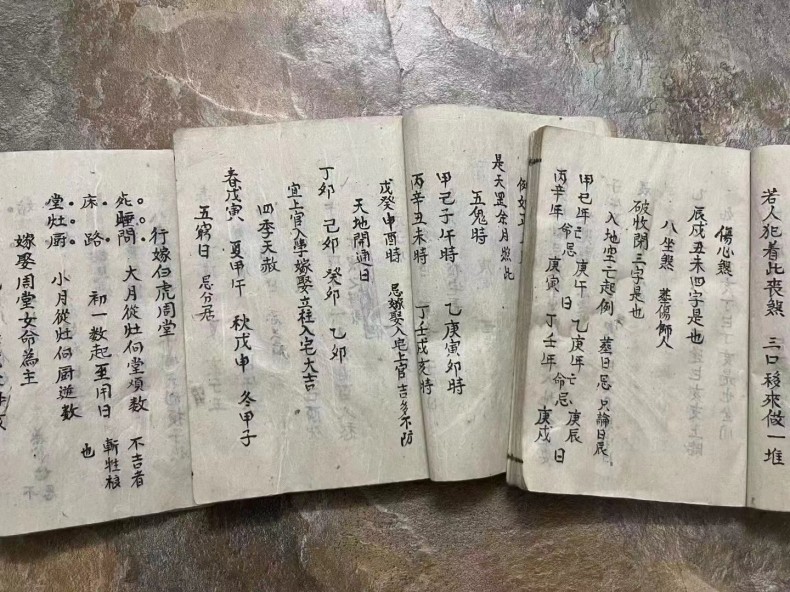 若人犯着此丧煞 三口移來做一堆
傷心煞
辰戌丑未四字是也
八坐煞 葬傷師人
破收開三字是也
入地空亡起例 葬日忌只論日辰
甲己年亡命忌 庚午日 乙庚年亡命忌 庚辰日
丙辛年亡命忌 庚寅日 丁壬年亡命忌 庚戌日
是天罡余月照此
五鬼時
甲己子午時 乙庚寅卯時
丙辛丑未時 丁壬戌亥時
戊癸申酉時 忌嫁娶入宅上官 吉多不防
天地開通日
丁卯 己卯 癸卯 乙卯
宜上官入學嫁娶立柱入宅大吉
四季天赦
春戊寅 夏甲午 秋戊申 冬甲子
五窮日 忌分居
行嫁白虎周堂
死睡門 大月從灶向堂順數 不吉者
床路 初一數起至用日 斬牲
堂灶厨 小月從灶向厨逆數 也
嫁娶周堂女命為主